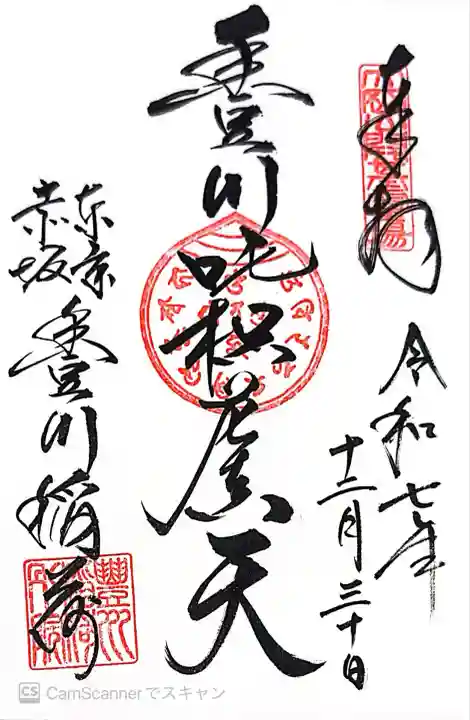 奉拝
令和七年
十二月三十日
豊川吒枳尼天
東京
赤坂
豊川稲荷
CS CamScannerでスキャン